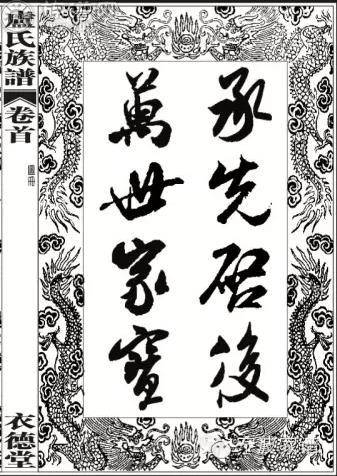 承先啓後
萬世家寶
盧氏族譜
卷首
圖冊
衣德堂